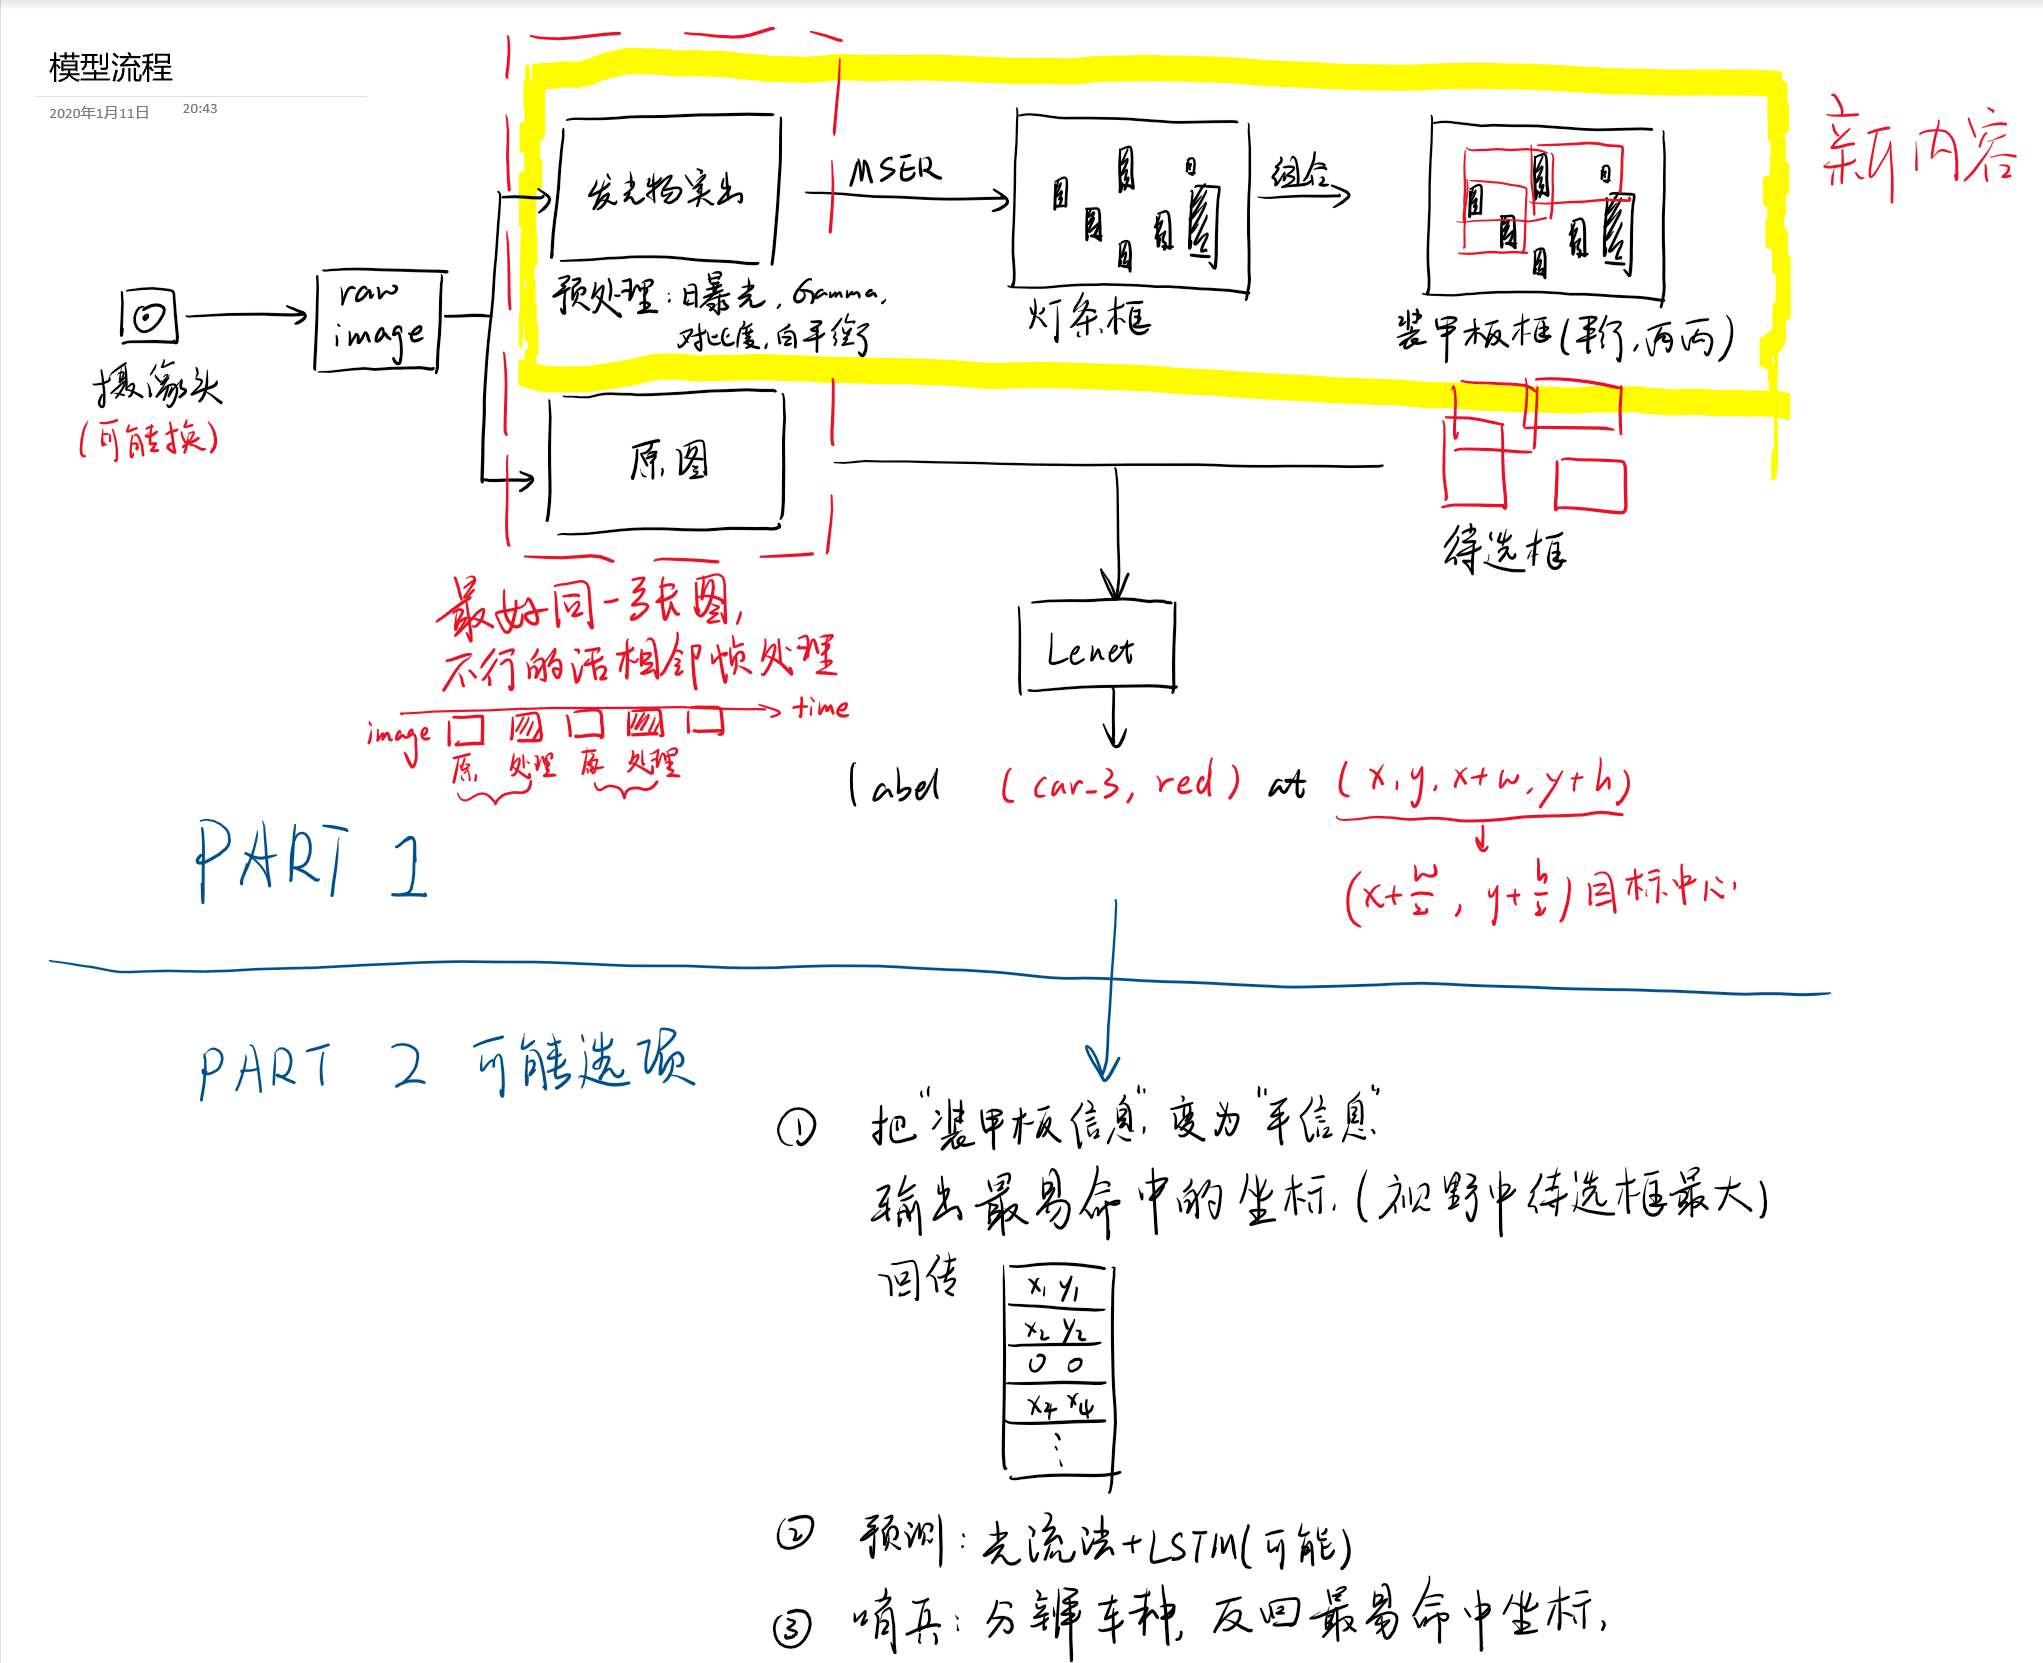 模型流程
2020年1月11日 20:43
新内容
发光物突出
MSER
组合
预处理：曝光，Gamma，
对比度，白平衡
灯条框
装甲板框（平行，两两）
raw
image
摄像头
（可能换）
原图
待选框
最好同一张图，
不行的话相邻帧处理
image
time
原 处理 原 处理
Lenet
label (car-3, red) at (x, y, x+w, y+h)
(x+w/2, y+h/2) 目标中心
PART 1
PART 2 可能选项
① 把“装甲板信息”变为“车信息”
输出最易命中的坐标.（视野中待选框最大）
回传
x₁ y₁
x₂ y₂
0 0
x₄ x₄
⋮
② 预测：光流法+LSTM(可能)
③ 哨兵：分辨车种，反回最易命中坐标，